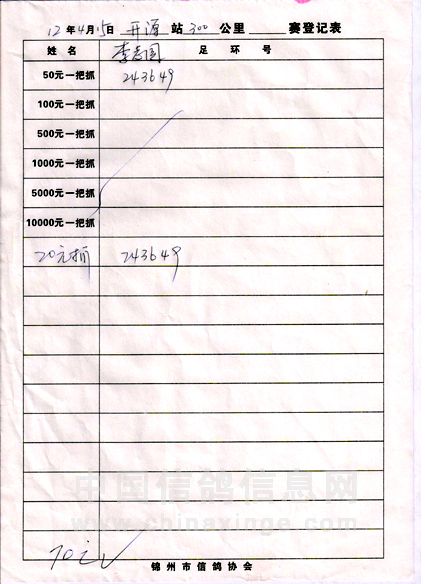 12年4月15日 开源 站 300 公里 赛登记表
姓名 李志国 足环号
50元一把抓 243649
100元一把抓
500元一把抓
1000元一把抓
5000元一把抓
10000元一把抓
20元抓 243649
中国信鸽信息网
www.chinaxinge.com
70元
锦州市信鸽协会